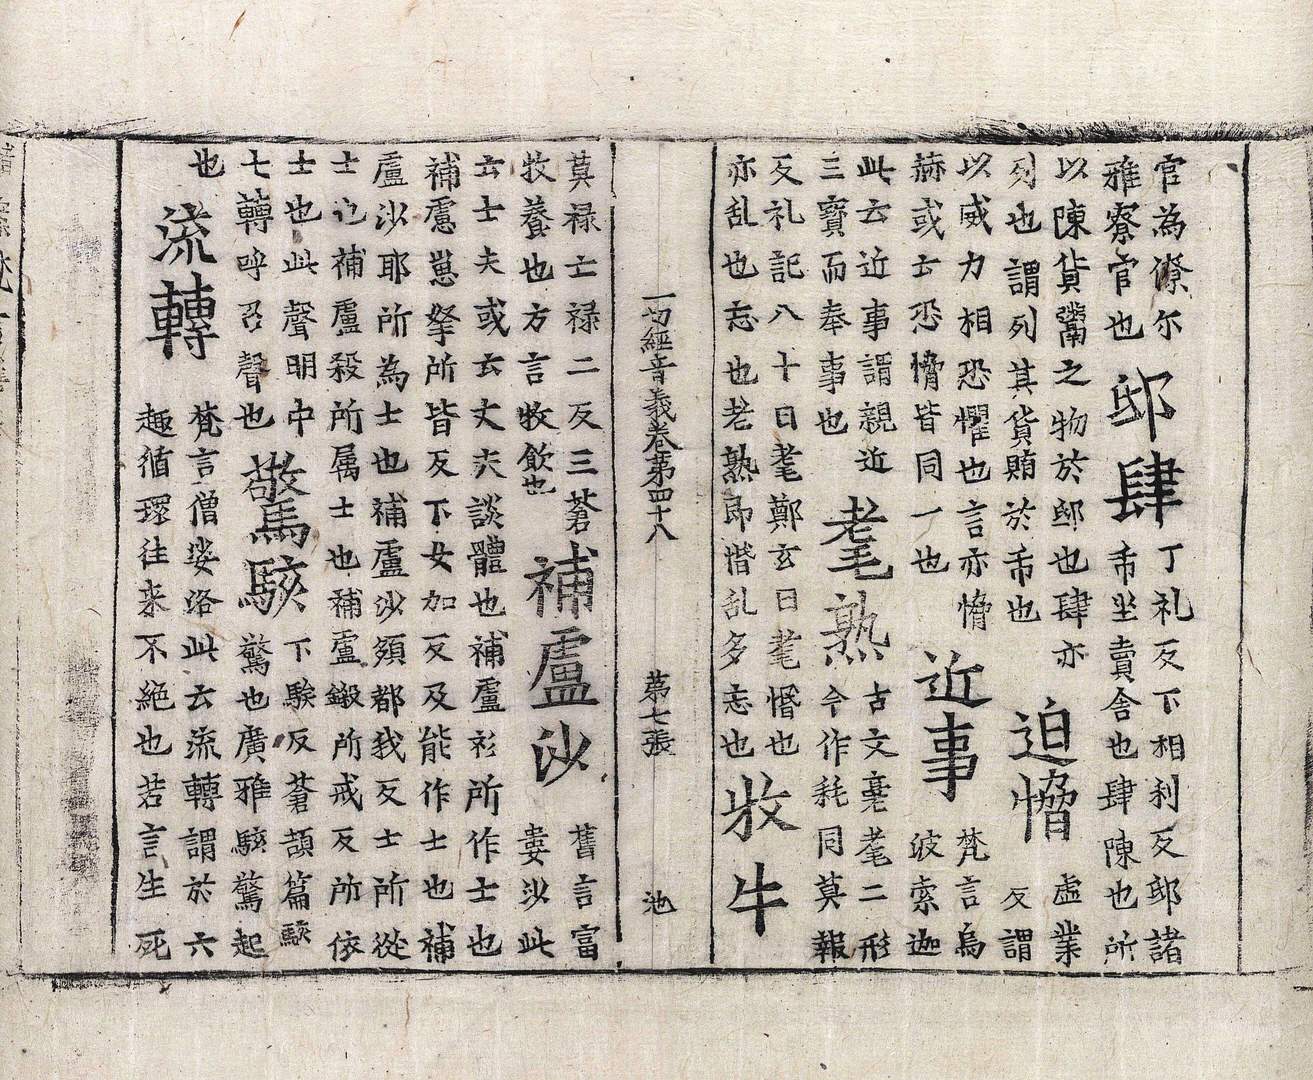 官為僚尔
雅寮官也
邸肆
丁礼反下相利反邸諸
市坐賣舍也肆陳也所
以陳貨鬻之物於邸也肆亦
列也謂列其貨賄於市也
迫愶
虛業
反謂
以威力相恐懼也言亦愶
赫或云恐愶皆同一也
近事
梵言烏
波索迦
此云近事謂親近
三寶而奉事也
耄熟
古文耄二形
今作耗同莫報
反礼記八十曰耄鄭玄曰耄惛也
亦乱也忘也老熟即惛乱多忘也
牧牛
一切經音義卷第四十八 第七張 池
莫禄亡禄二反三蒼
牧養也方言牧飤也
補盧沙
舊言富
婁沙此
云士夫或云丈夫談體也補盧衫所作士也
補盧崽拏所皆反下女加反及能作士也補
盧沙耶所為士也補盧沙頞都我反士所從
士也補盧殺所属士也補盧鍛所戒反所依
士也此聲明中
七轉呼召聲也
驚駭
下駭反蒼頡篇駭
驚也廣雅駭驚起
也
流轉
梵言僧娑洛此云流轉謂於六
趣循環往来不絶也若言生死